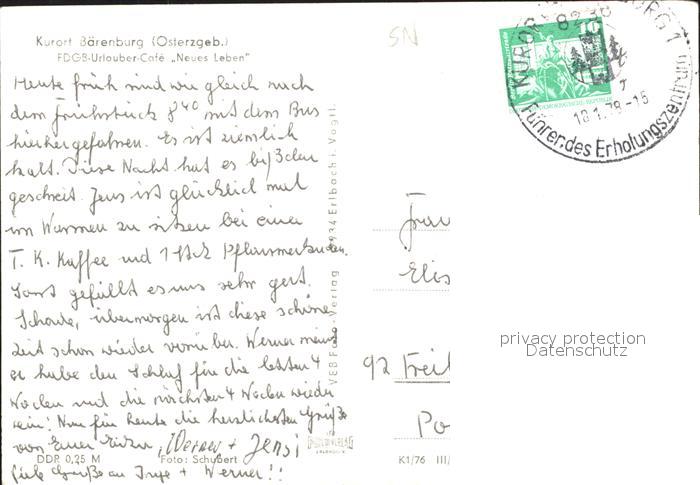 Kurort Bärenburg (Osterzgeb.)
FDGB-Urlauber-Café „Neues Leben"
Heute früh sind wir gleich nach
dem Frühstück 8⁴⁰ mit dem Bus
hierher gefahren. Es ist ziemlich
kalt. Diese Nacht hat es bißchen
geschneit. Jens ist glücklich mal
im Warmen zu sitzen bei einer
T. K. Kaffee und 1 Stck Pflaumenkuchen.
Sonst gefällt es uns sehr gut.
Schade, übermorgen ist diese schöne
Zeit schon wieder vorüber. Werner meint
er habe den Schlaf für die letzten 4
Wochen und die nächsten 4 Wochen wieder
rein! Nun für heute die herzlichsten Grüße
von Eurer Werner + Jens!
Viele Grüße an Inge + Werner!!
DDR 0,25 M
Foto: Schubert
VEB Foto-Verlag 9934 Erlbach i. Vogtl.
K1/76 III/
SN
KURORT
8238
18.1.78-15
Führer des Erholungszentrums
10
Frau
Elis
92 Freib
Po
privacy protection
Datenschutz